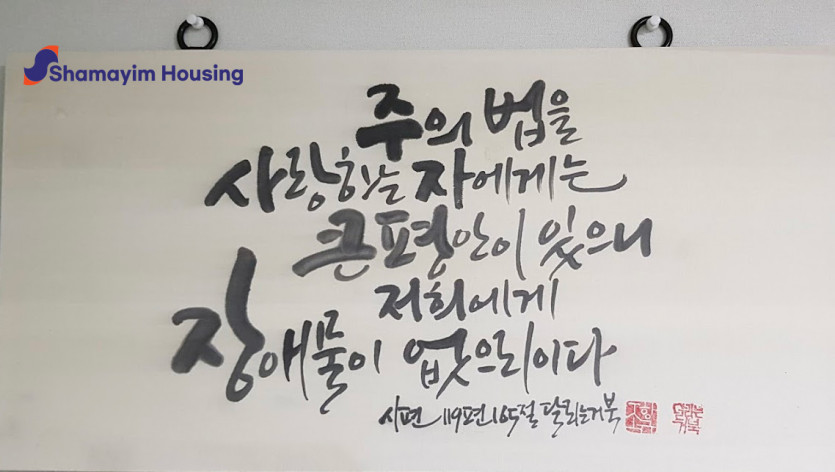 Shamayim Housing
주의 법을
사랑하는 자에게는
큰 평안이 있으니
저희에게
장애물이 없으리이다
시편 119편 165절 달리는거북
달리는
거북